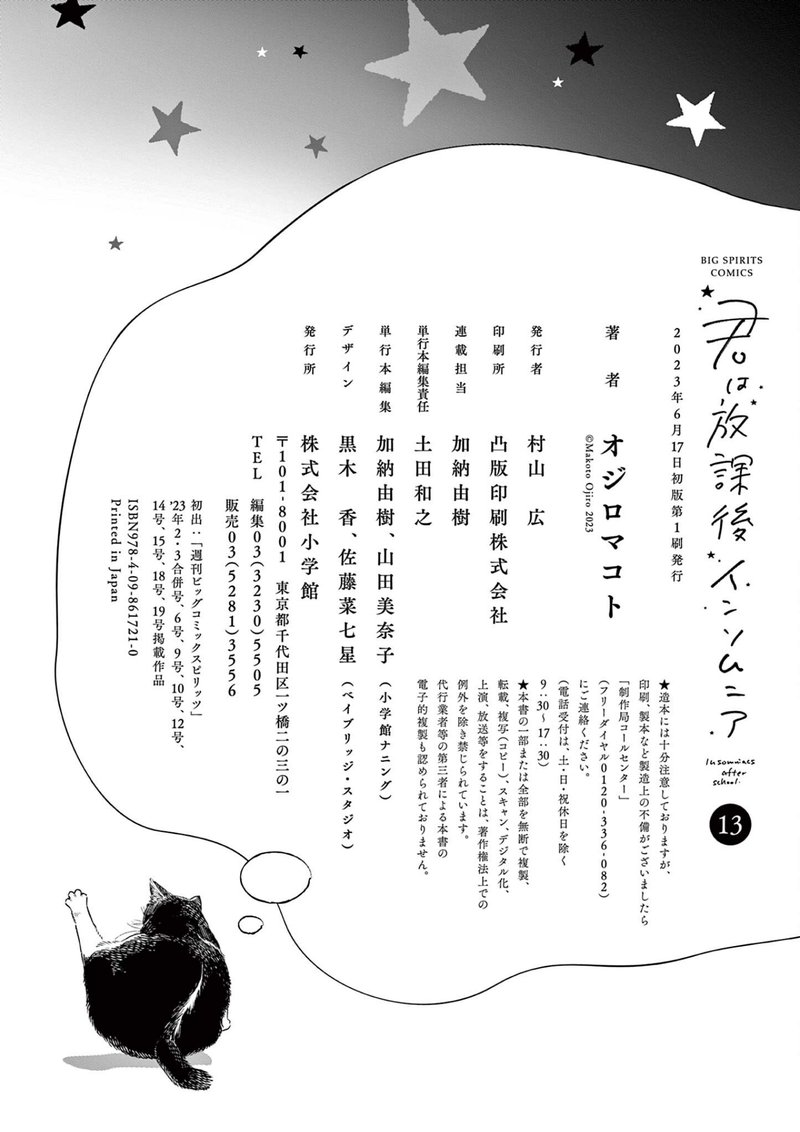 BIG SPIRITS
COMICS
君は放課後インソムニア
Insomniacs
after
school
13
2023年6月17日初版第1刷発行
著者
オジロマコト
©Makoto Ojiro 2023
発行者
村山 広
印刷所
凸版印刷株式会社
連載担当
加納由樹
単行本編集責任
土田和之
単行本編集
加納由樹、山田美奈子(小学館ナニング)
デザイン
黒木 香、佐藤菜七星(ベイブリッジ・スタジオ)
発行所
株式会社小学館
〒101-8001 東京都千代田区一ツ橋二の三の一
TEL 編集03(3230)5505
販売03(5281)3556
★造本には十分注意しておりますが、
印刷、製本など製造上の不備がございましたら
「制作局コールセンター」
(フリーダイヤル0120-336-082)
にご連絡ください。
(電話受付は、土・日・祝休日を除く
9:30〜17:30)
★本書の一部または全部を無断で複製、
転載、複写(コピー)、スキャン、デジタル化、
上演、放送等をすることは、著作権法上での
例外を除き禁じられています。
代行業者等の第三者による本書の
電子的複製も認められておりません。
初出:「週刊ビッグコミックスピリッツ」
'23年2・3合併号、6号、9号、10号、12号、
14号、15号、18号、19号掲載作品
ISBN978-4-09-861721-0
Printed in Japan